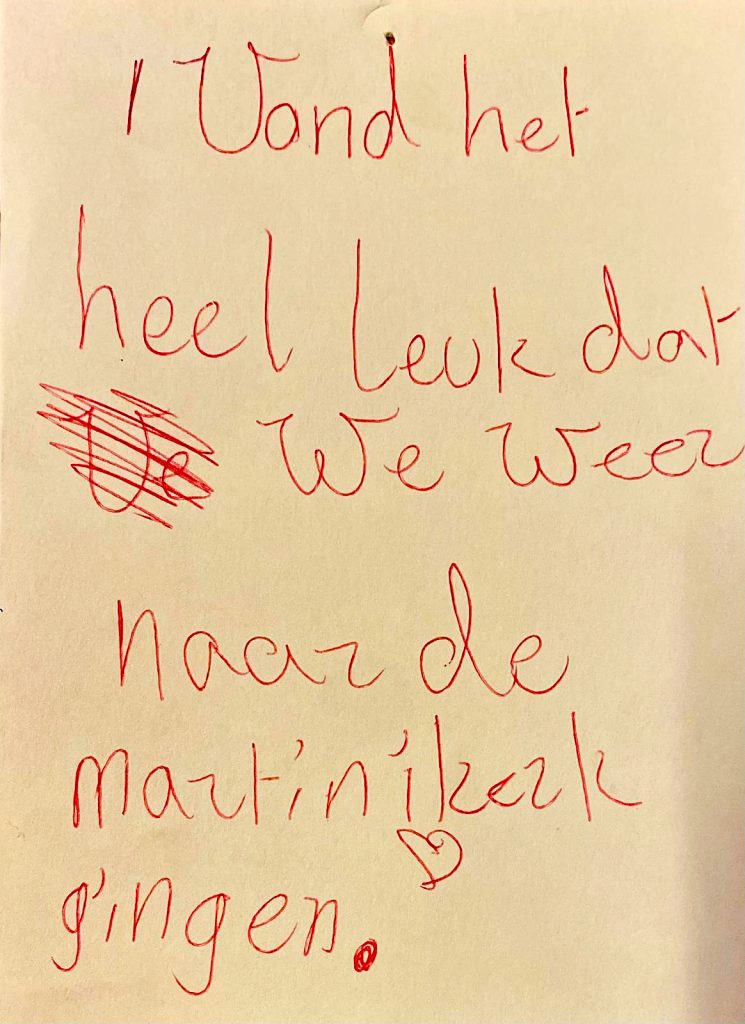 I Vond het
heel leuk dat
We weer
naar de
martinikerk
gingen.